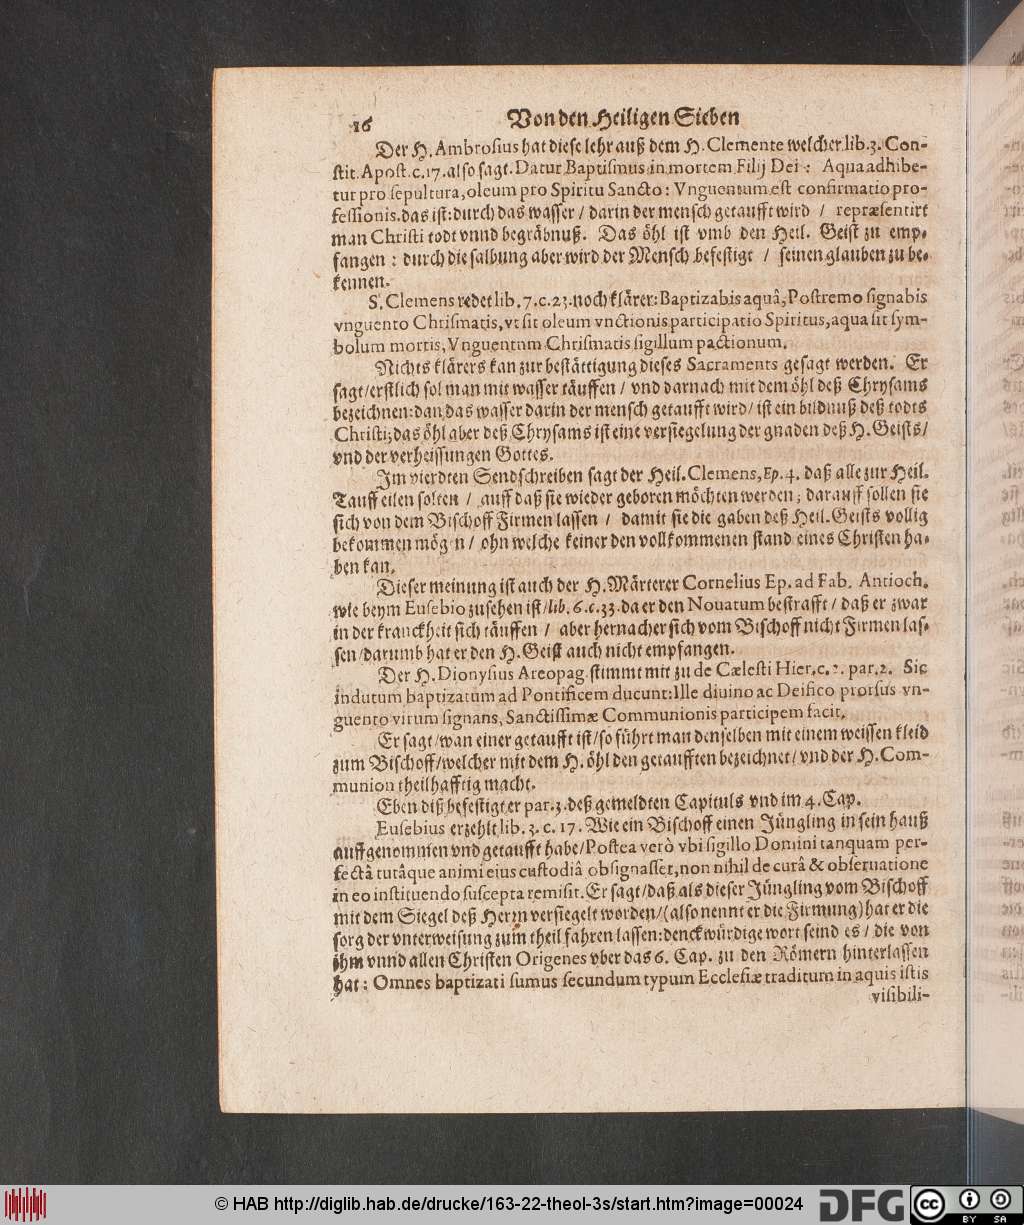 16 Von den Heiligen Sieben
Der H. Ambrosius hat diese lehr auß dem H. Clemente welcher lib. 3. Con-
stit. Apost. c. 17. also sagt. Datur Baptismus in mortem Filij Dei: Aqua adhibe-
tur pro sepultura, oleum pro Spiritu Sancto: Vnguentum est confirmatio pro-
fessionis. das ist: durch das wasser / darin der mensch getaufft wird / repræsentirt
man Christi todt vnnd begräbnuß. Das öhl ist vmb den Heil. Geist zu emp-
fangen: durch die salbung aber wird der Mensch befestigt / seinen glauben zu be-
kennen.
S. Clemens redet lib. 7. c. 23. noch klärer: Baptizabis aquâ, Postremo signabis
vnguento Chrismatis, vt sit oleum vnctionis participatio Spiritus, aqua sit sym-
bolum mortis, Vnguentum Chrismatis sigillum pactionum.
Nichts klärers kan zur bestättigung dieses Sacraments gesagt werden. Er
sagt / erstlich sol man mit wasser täuffen / vnd darnach mit dem öhl deß Chrysams
bezeichnen: dan das wasser darin der mensch getaufft wird / ist ein bildnuß deß todts
Christi; das öhl aber deß Chrysams ist eine versiegelung der gnaden deß H. Geists /
vnd der verheissungen Gottes.
Im vierdten Sendschreiben sagt der Heil. Clemens, Ep. 4. daß alle zur Heil.
Tauff eilen solten / auff daß sie wieder geboren möchten werden; darauff sollen sie
sich von dem Bischoff Firmen lassen / damit sie die gaben deß Heil. Geists vollig
bekommen mögen / ohn welche keiner den vollkommenen stand eines Christen ha-
ben kan.
Dieser meinung ist auch der H. Märterer Cornelius Ep. ad Fab. Antioch.
wie beym Eusebio zusehen ist / lib. 6. c. 33. da er den Nouatum bestrafft / daß er zwar
in der kranckheit sich täuffen / aber hernacher sich vom Bischoff nicht Firmen las-
sen / darumb hat er den H. Geist auch nicht empfangen.
Der H. Dionysius Areopag. stimmt mit zu de Cælesti Hier. c. 2. par. 2. Sic
indutum baptizatum ad Pontificem ducunt: Ille diuino ac Deifico prorsus vn-
guento virum signans, Sanctissimæ Communionis participem facit.
Er sagt / wan einer getaufft ist / so führt man denselben mit einem weissen kleid
zum Bischoff / welcher mit dem H. öhl den getaufften bezeichnet / vnd der H. Com-
munion theilhafftig macht.
Eben diß befestigt er par. 3. deß gemeldten Capituls vnd im 4. Cap.
Eusebius erzehlt lib. 3. c. 17. Wie ein Bischoff einen Jüngling in sein hauß
auffgenommen vnd getaufft habe / Postea verò vbi sigillo Domini tanquam per-
fectâ tutâque animi eius custodiâ obsignasset, non nihil de curâ & obseruatione
in eo instituendo suscepta remisit. Er sagt / daß als dieser Jüngling vom Bischoff
mit dem Siegel deß Herrn versiegelt worden / (also nennt er die Firmung) hat er die
sorg der vnterweisung zum theil fahren lassen: denckwürdige wort seind es / die von
ihm vnnd allen Christen Origenes vber das 6. Cap. zu den Römern hinterlassen
hat: Omnes baptizati sumus secundum typum Ecclesiæ traditum in aquis istis
visibili-
© HAB http://diglib.hab.de/drucke/163-22-theol-3s/start.htm?image=00024
DFG
cc BY SA